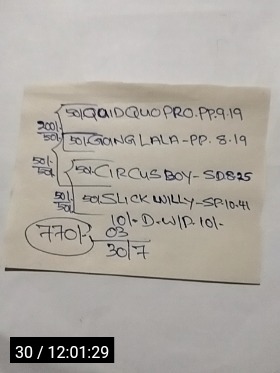 50/- QUID QUO PRO. PP. 9.19
200/-
50/- 50/- GOING LALA - PP. 8.19
50/-
50/- 50/- CIRCUS BOY - SD 8.25
50/-
50/- 50/- SLICK WILLY - SP. 10.41
10/- D. W/P. 10/-
770/- 03
30/7
30 / 12:01:29